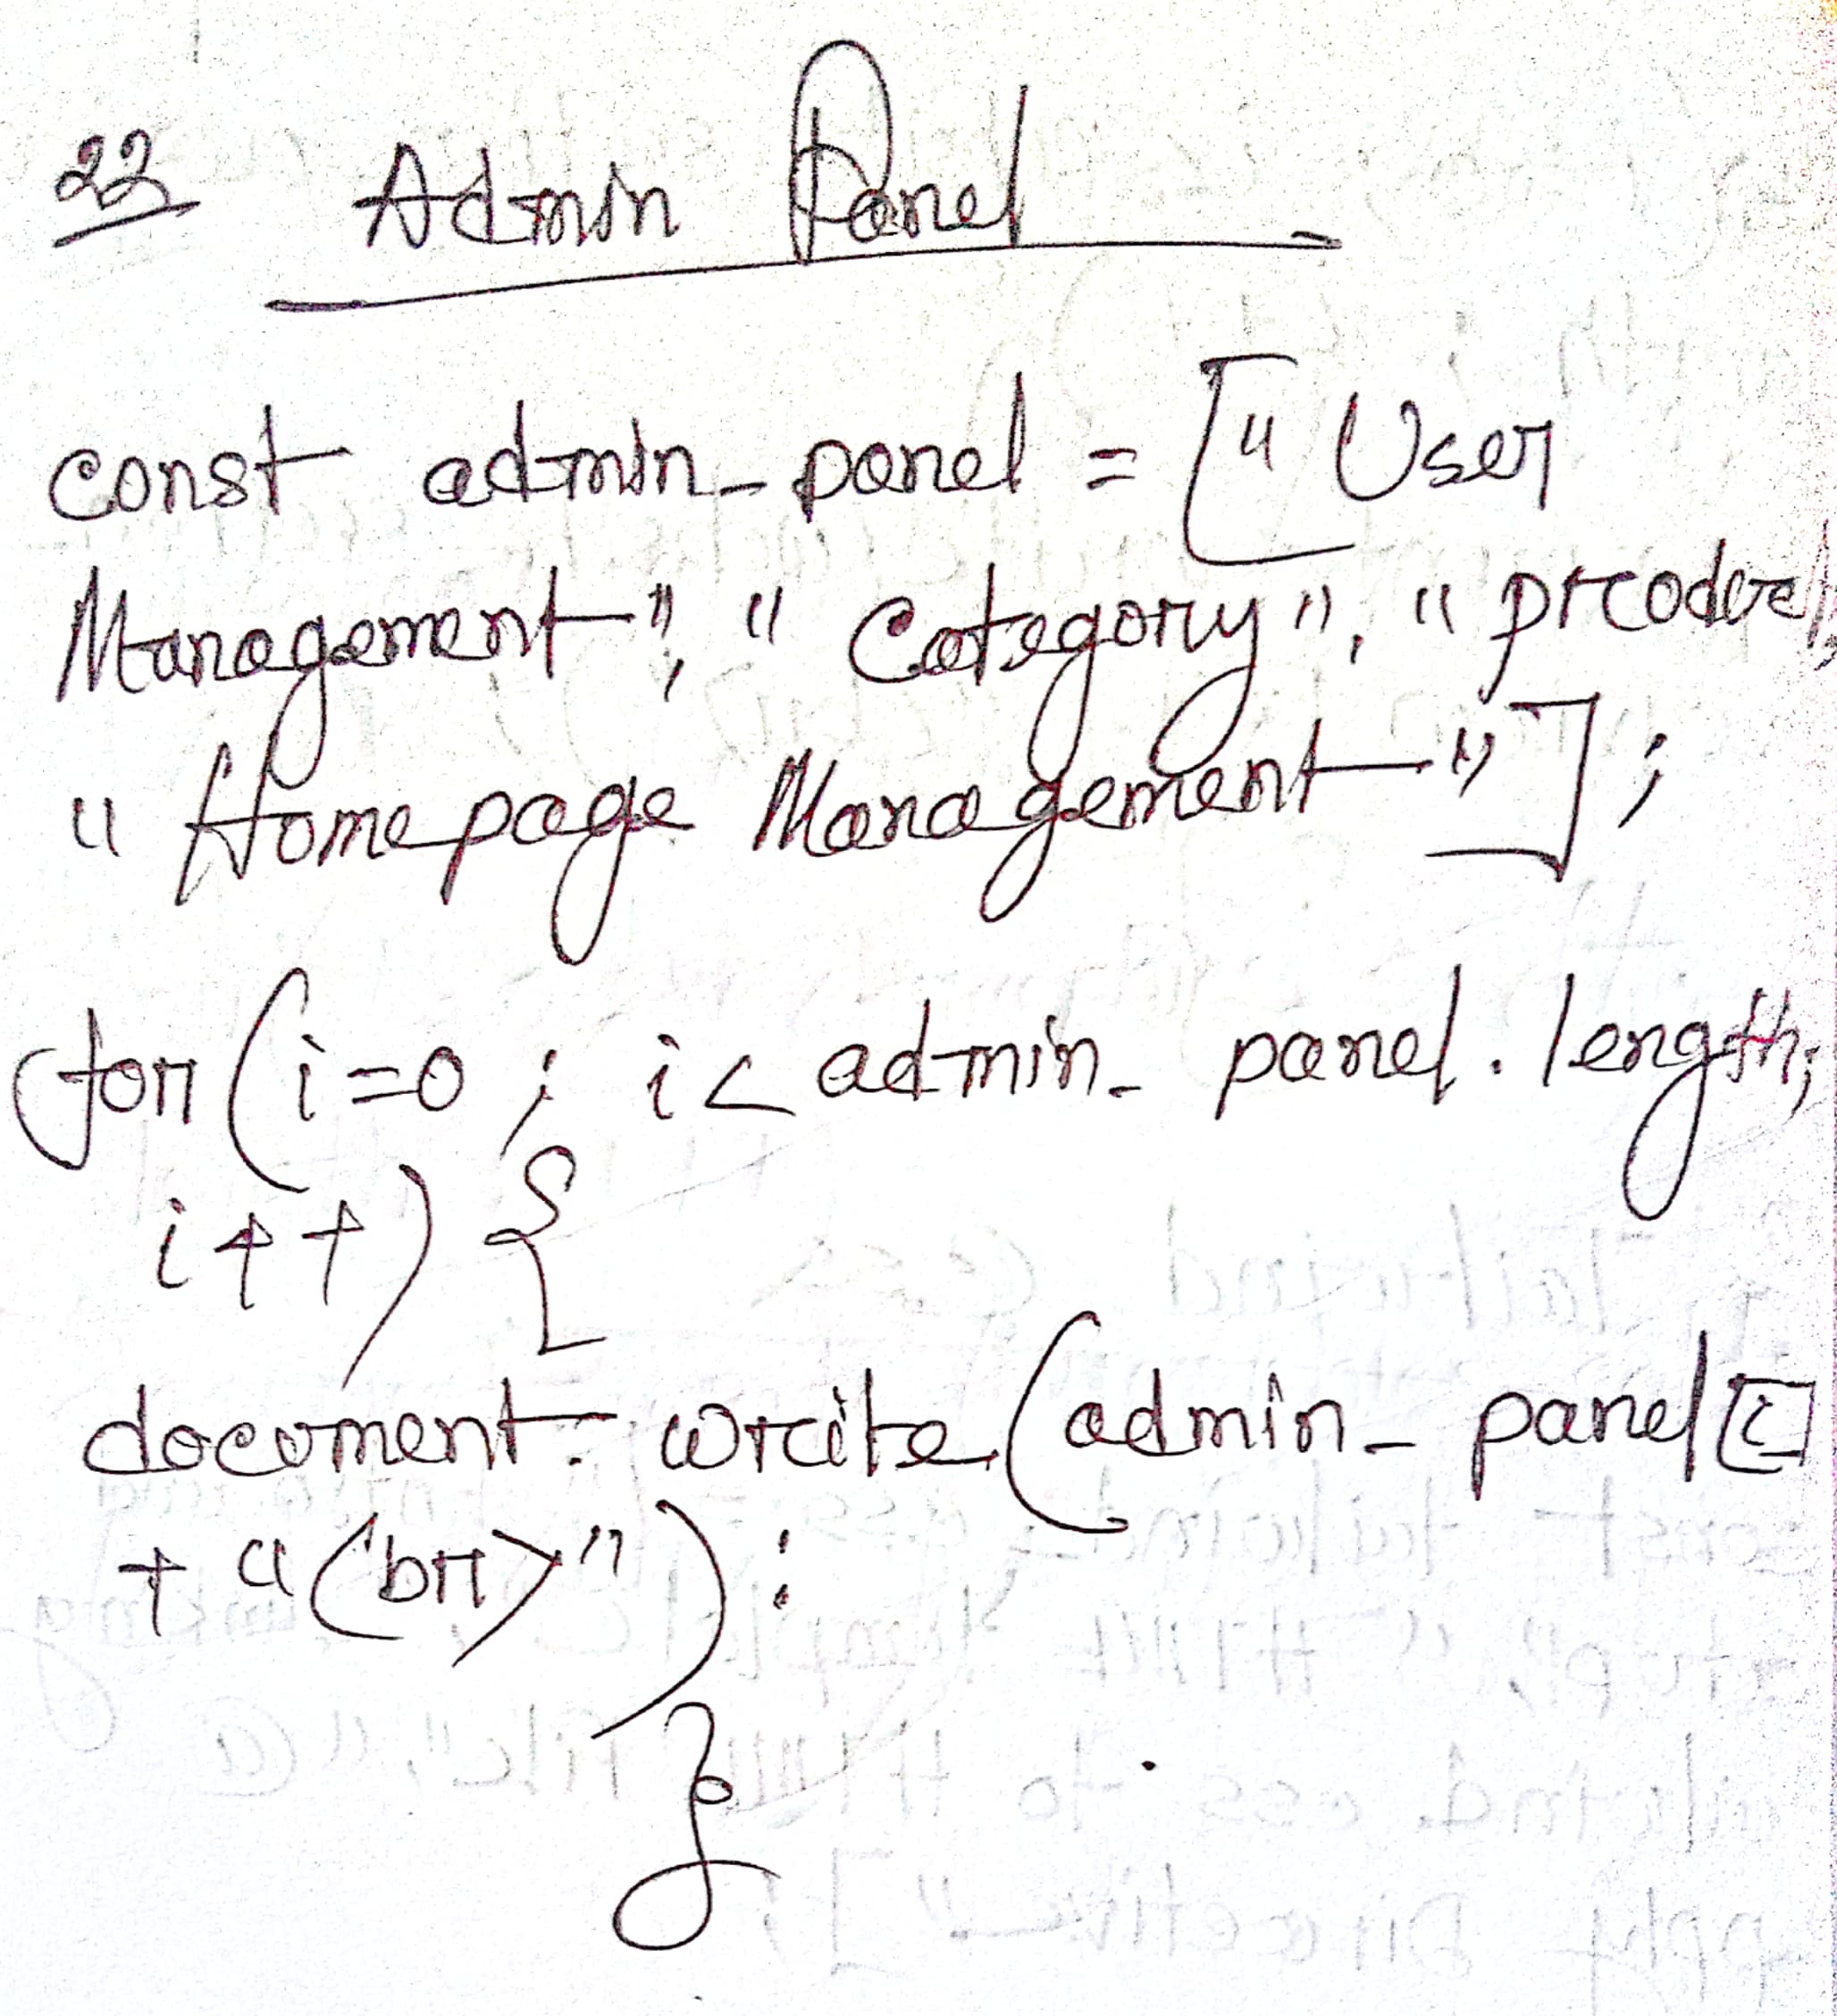 22 Admin Panel
const admin_panel = ["User
Management", "Category", "product",
"Homepage Management"];
for(i=0; i< admin_panel.length;
i++){
document.write(admin_panel[i]
+ "<br>");
}